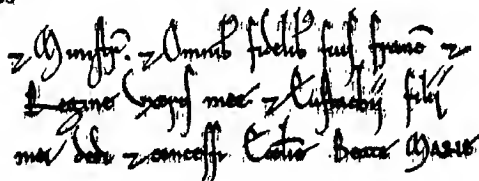 ⁊ Ministr̃. ⁊ Omnibꝫ fidelibꝫ suis franc̃ ⁊
Regine Uxoris mee ⁊ Eustachij filij
mei dedi ⁊ concessi Ecclie Beate Marie